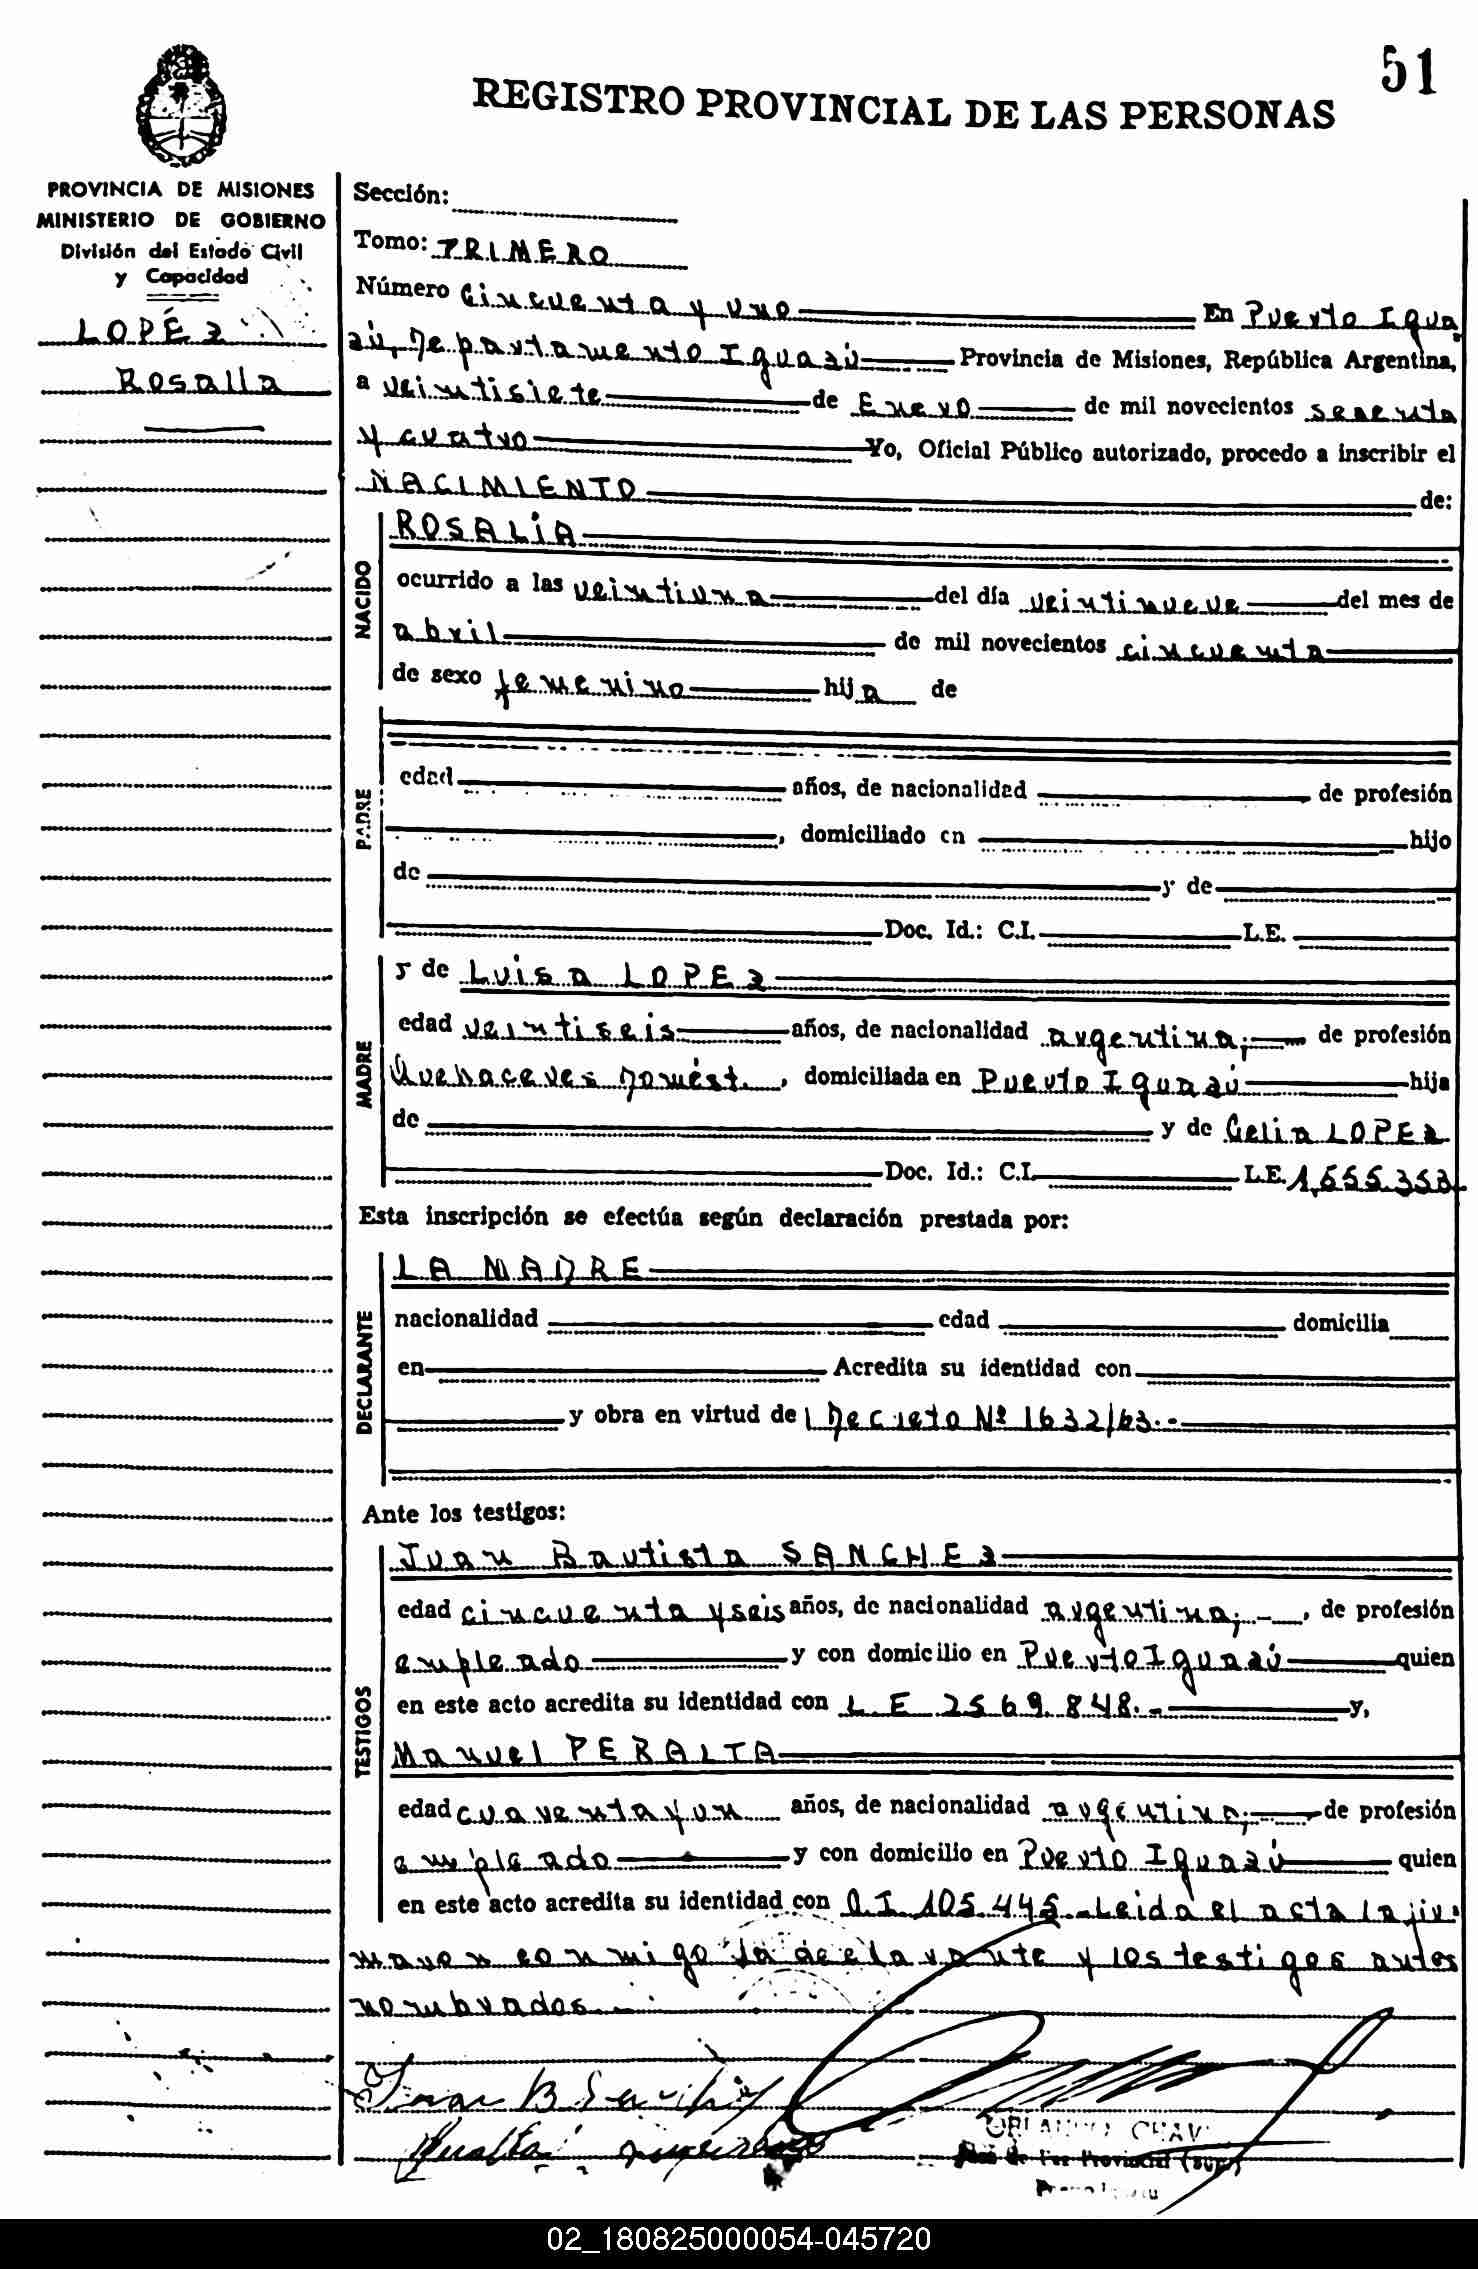 51
REGISTRO PROVINCIAL DE LAS PERSONAS
PROVINCIA DE MISIONES
MINISTERIO DE GOBIERNO
División del Estado Civil
y Capacidad
LOPÉZ
Rosalía
Sección:
Tomo: PRIMERO
Número Cincuenta y uno En Puerto Igua
zú, Departamento Iguazú Provincia de Misiones, República Argentina,
a veintisiete de Enero de mil novecientos sesenta
y cuatro Yo, Oficial Público autorizado, procedo a inscribir el
NACIMIENTO de:
NACIDO
ROSALÍA
ocurrido a las veintiuna del día veintinueve del mes de
abril de mil novecientos cincuenta
de sexo femenino hija de
PADRE
edad años, de nacionalidad de profesión
, domiciliado en hijo
de y de
Doc. Id.: C.I. L.E.
MADRE
y de Luisa LOPEZ
edad veintiseis años, de nacionalidad argentina, de profesión
Quehaceres Domést. , domiciliada en Puerto Iguazú hija
de y de Celia LOPEZ
Doc. Id.: C.I. L.E. 1,655.353
Esta inscripción se efectúa según declaración prestada por:
DECLARANTE
LA MADRE
nacionalidad edad domicilia
en Acredita su identidad con
y obra en virtud de Decreto Nº 1632/63.-
Ante los testigos:
TESTIGOS
Juan Bautista SANCHEZ
edad cincuenta y seis años, de nacionalidad argentina; , de profesión
empleado y con domicilio en Puerto Iguazú quien
en este acto acredita su identidad con L.E 2569.848.- y,
Manuel PERALTA
edad cuarenta y un años, de nacionalidad argentina; de profesión
empleado y con domicilio en Puerto Iguazú quien
en este acto acredita su identidad con C.I 105.445.-Leida el acta la fir
maron conmigo la declarante y los testigos antes
nombrados.-
Juan B Sanchez
Peralta
ORLANDO CHAV
Juez de Paz Provincial (sup)
02_180825000054-045720